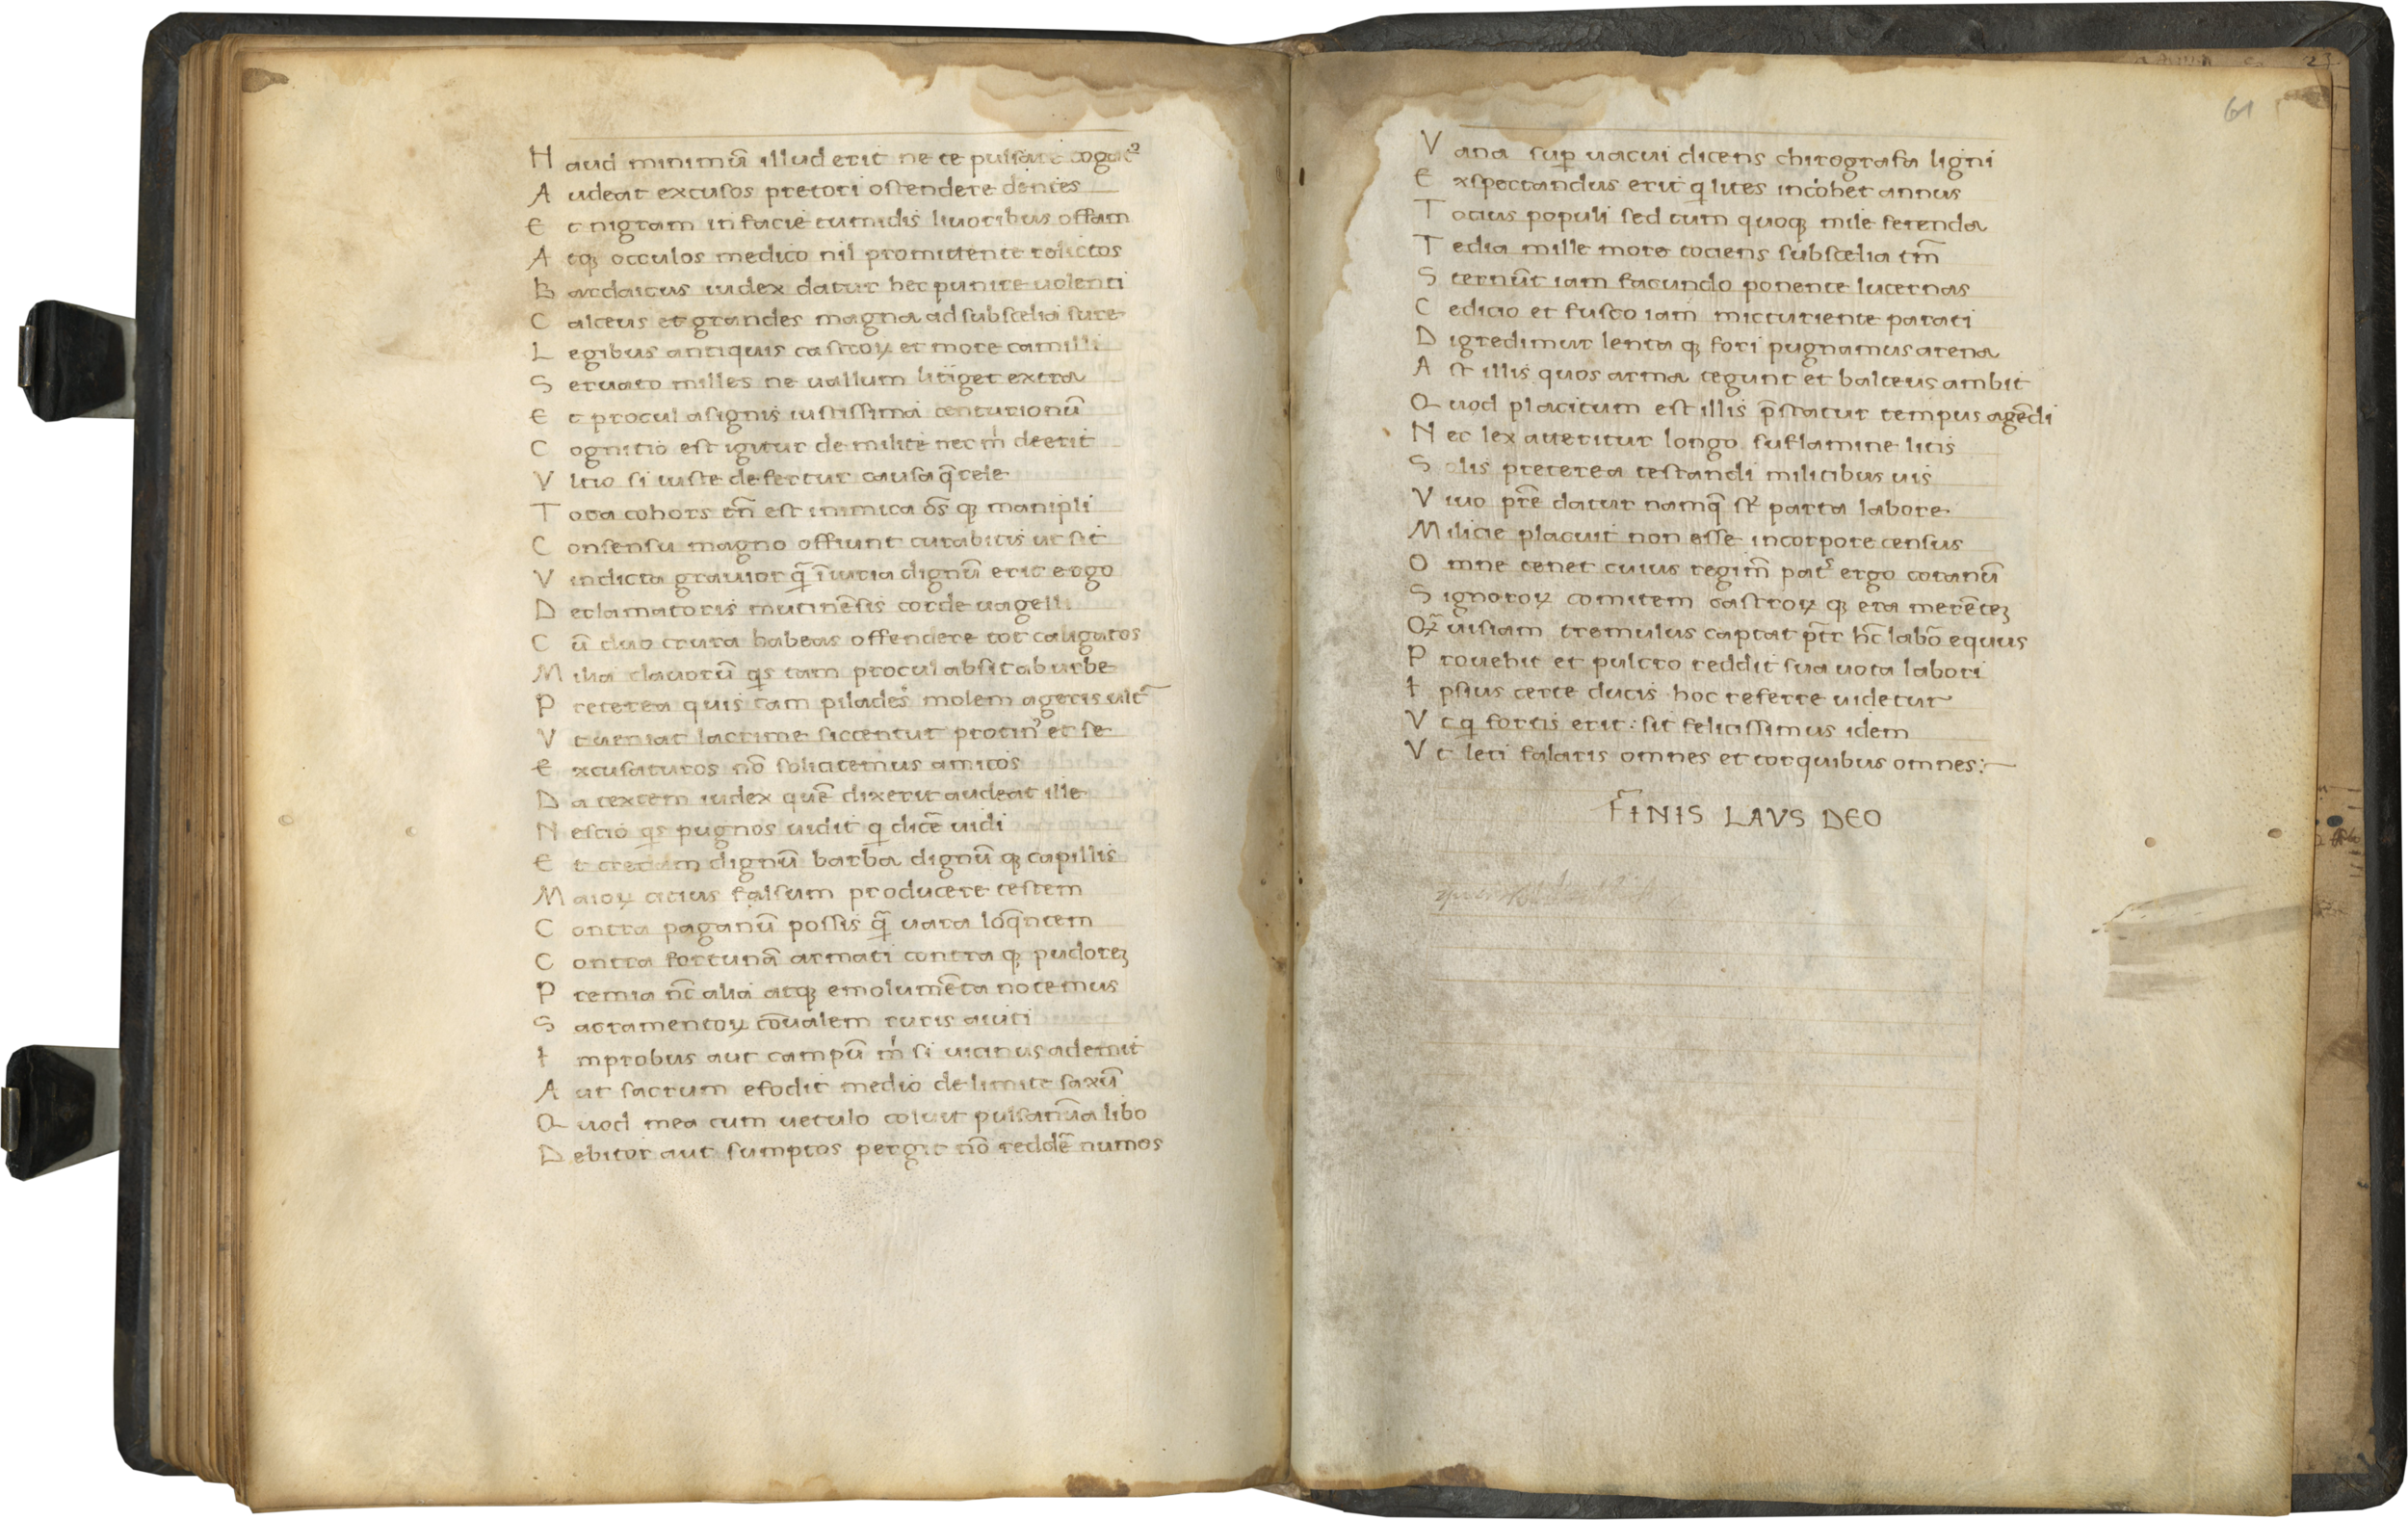 Haud minimū illud erit ne te pulsare togat᾿
Audeat excusos pretori ostendere dentes
Et nigram in facie tumidis liuoribus offam
Atqꝫ occulos medico nil promittente relictos
Bardaicus iudex datur hec punire uolenti
Calceus et grandes magna ad subscelia sure
Legibus antiquis castroꝝ et more camilli
Seruato milles ne uallum litiget extra
Et procul a signis iustissima centurionū
Cognitio est igitur de milite nec m̍ deerit
Vltio si iuste defertur causa q̄rele
Tota cohors tn̄ est inimica ōs qꝫ manipli
Consensu magno offiunt curabitis ut sit
Vindicta grauior q̄ īiuria dignū erit ergo
Declamatoris mutinēsis corde uagelli
Cū duo crura habeas offendere tot caligatos
Milia clauorū qs tam procul absit ab urbe
Preterea quis tam pilades molem ageris ult̄
Vt ueniat lacrime siccentur protin᾿ et se
Excusaturos nō solicitemus amicos
Da textem iudex quē dixerit audeat ille
Nescio qs pugnos uidit q dicē uidi
Et credam dignū barba dignū qꝫ capillis
Maioꝝ citius falsum producere testem
Contra paganū possis q̄ uara loq̄ntem
Contra fortunā armati contra qꝫ pudoreꝫ
Premia nc̄ alia atqꝫ emolumēta notemus
Sacramentoꝝ cōualem ruris auiti
Improbus aut campū m̍ si uicinus ademit
Aut sacrum efodit medio de limite saxū
Quod mea cum uetulo coluit puls anūa libo
Debitor aut sumptos pergit nō reddē numos
61
Vana suꝑ uacui dicens chirografa ligni
Exspectandus erit q lites incohet annus
Totius populi sed tum quoqꝫ mile ferenda
Tedia mille more tociens subscelia tm̄
Sternūt iam facundo ponente lucernas
Cedicio et fusco iam micturiente parati
Digredimur lenta qꝫ fori pugnamus arena
Ast illis quos arma tegunt et balteus ambit
Quod placitum est illis p̄statur tempus agēdi
Nec lex aueritur longo suflamine litis
Solis preterea testandi militibus uis
Viuo pr̄e datur namq̄ st᾿ parta labore
Milicie placuit non esse in corpore census
Omne tenet cuius regim̄ pat᾿ ergo coranū
Signoroꝝ comitem castroꝝ qꝫ era merēteꝫ
Qꝫ̄uis iam tremulus captat pr̄r hc̄ labō equus
Prouehit et pulcro reddit sua uota labori
Ipsius certe ducis hoc referre uidetur
Vt q fortis erit: sit felicissimus idem
Vt leti falaris omnes et torquibus omnes:~
FINIS LAVS DEO